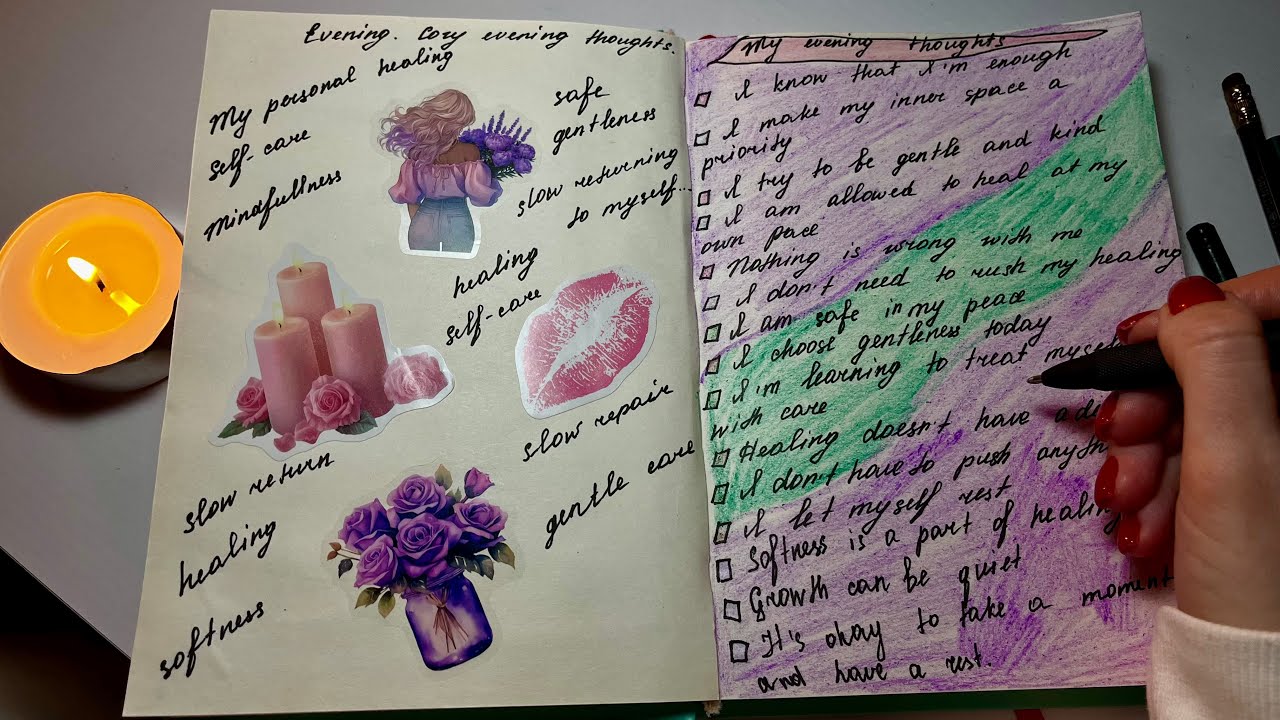 Evening. Cozy evening thoughts.
My personal healing
self-care
mindfullness
safe
gentleness
slow returning
to myself...
healing
self-care
slow repair
gentle care
slow return
healing
softness
My evening thoughts
I know that I'm enough
I make my inner space a
priority
I try to be gentle and kind
I am allowed to heal at my
own pace
Nothing is wrong with me
I don't need to rush my healing
I am safe in my peace
I choose gentleness today
I'm learning to treat myself
with care
Healing doesn't have a
I don't have to push
I let myself rest
Softness is a part of healing
Growth can be quiet
It's okay to take a moment
and have a rest.